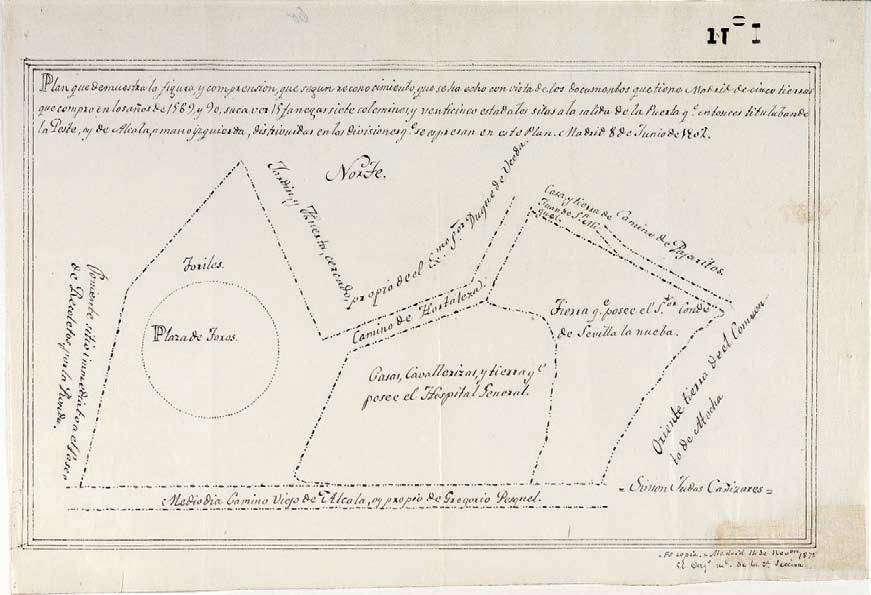 Nº I
Plan que demuestra la figura, y comprension, que segun reconocimiento que se ha echo con vista de los documentos que tiene Madrid de cinco tierras
que compro en los años de 1589, y 90, su caver 15 fanegas siete celemines y venticinco estadales sitas a la salida de la Puerta qe. entonces titulaban de
la Peste, oy de Alcala, a mano izquierda, distrivuidas en las divisiones qe. se expresan en este Plan. Madrid 8 de Junio de 1802.
Norte.
Jardin y Huerta, cercado,
propio de el Exmo. Sor. Duque de Uceda.
Casa, y tierra de
Juan de Sn. Mi-
guel.
Camino de Pajaritos.
Toriles.
Plaza de Toros.
Camino de Hortaleza.
Tierra qe. posee el Sor. Conde
de Sevilla la nueba.
Casas, Cavallerizas, y tierra qe.
posee el Hospital General.
Poniente sitio inmediato a el Paseo
de Recoletos, por la Ronda.
Oriente tierra de el Comven
to de Atocha
Mediodia Camino Viejo de Alcala, oy propio de Gregorio Pesquel.
= Simon Judas Cañizares =
Es copia. = Madrid 14 de Novre.
de la 3ª Seccion.